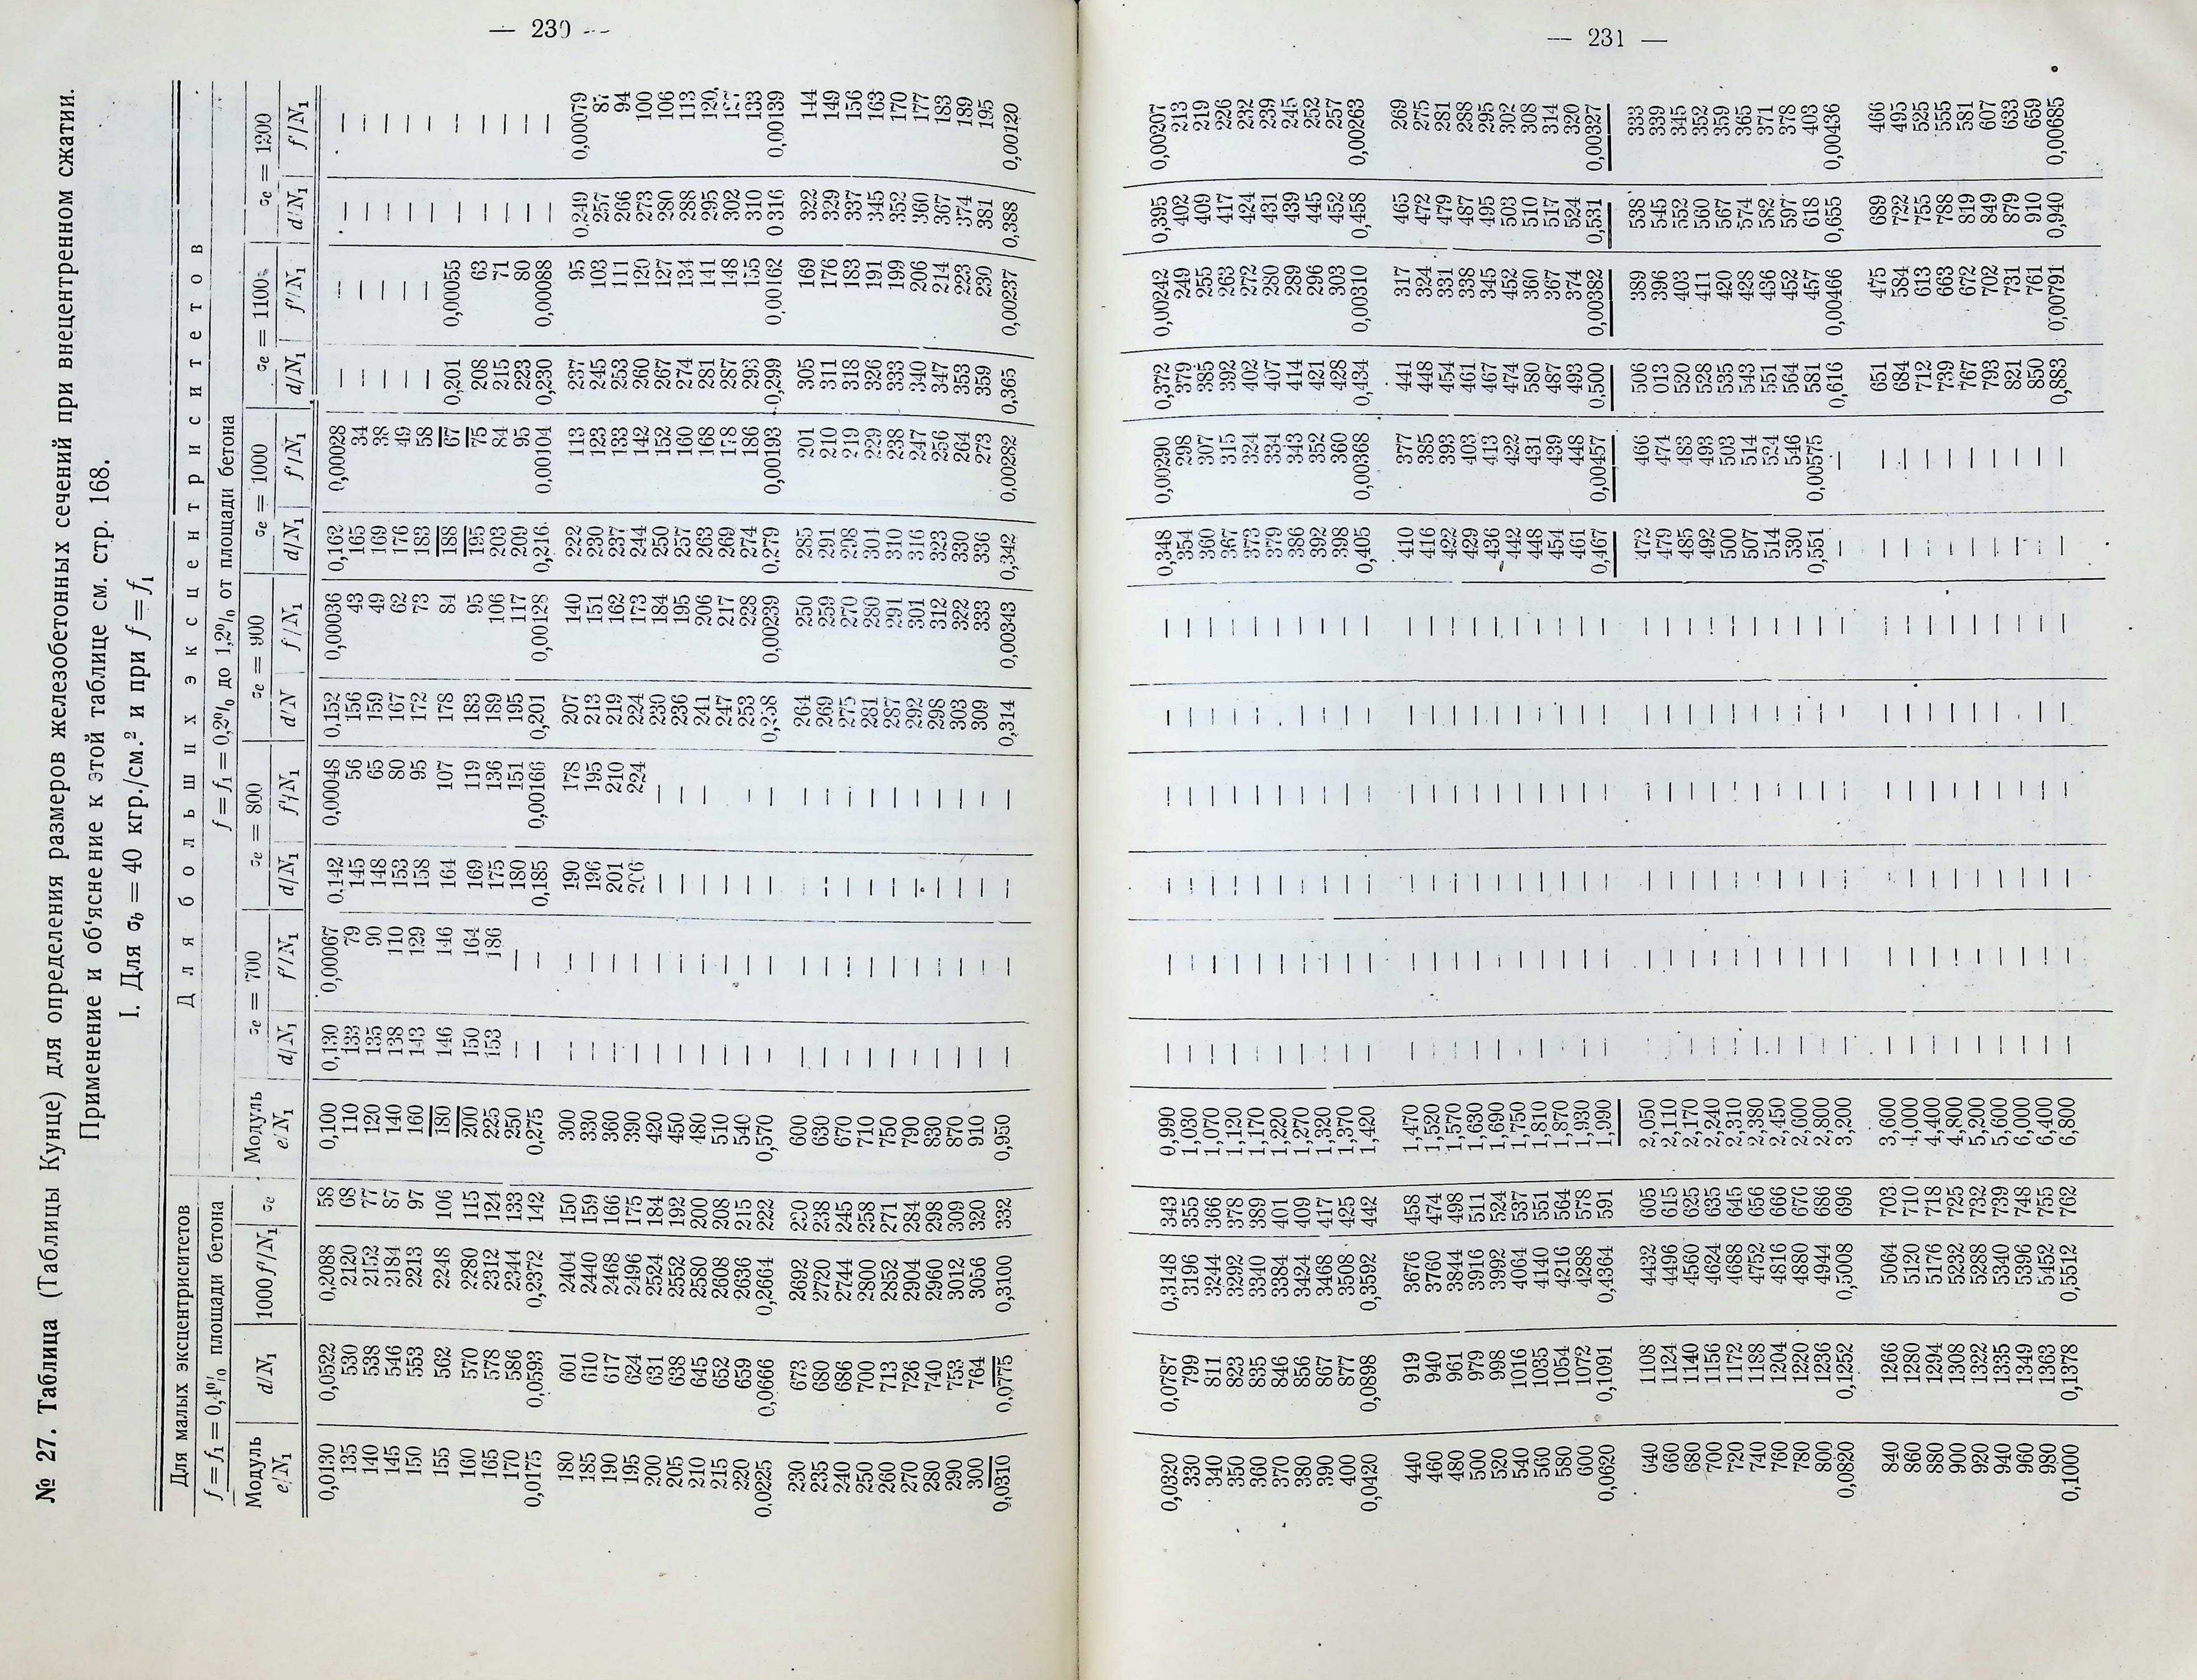 — 230 —
№ 27. Таблица (Таблицы Кунце) для определения размеров железобетонных сечений при внецентренном сжатии.
Применение и об'яснение к этой таблице см. стр. 168.
I. Для σb = 40 кгр./см.² и при f = f₁
Для малых эксцентриситетов Для больших эксцентриситетов
f = f₁ = 0,4% площади бетона f = f₁ = 0,2% до 1,2% от площади бетона
Модуль e/N₁ d/N₁ 1000 f/N₁ σe Модуль e/N₁ σe = 700 σe = 800 σe = 900 σe = 1000 σe = 1100 σe = 1200
d/N₁ f/N₁ d/N₁ f/N₁ d/N f/N₁ d/N₁ f/N₁ d/N₁ f/N₁ d/N₁ f/N₁
0,0130 0,0522 0,2088 58 0,100 0,130 0,00067 0,142 0,00048 0,152 0,00036 0,162 0,00028 — — — —
135 530 2120 68 110 133 79 145 56 156 43 165 34 — — — —
140 538 2152 77 120 135 90 148 65 159 49 169 38 — — — —
145 546 2184 87 140 138 110 153 80 167 62 176 49 — — — —
150 553 2213 97 160 143 129 158 95 172 73 183 58 — — — —
155 562 2248 106 180 146 146 164 107 178 84 188 67 0,201 0,00055 — —
160 570 2280 115 200 150 164 169 119 183 95 195 75 208 63 — —
165 578 2312 124 225 153 186 175 136 189 106 203 84 215 71 — —
170 586 2344 133 250 — — 180 151 195 117 209 95 223 80 — —
0,0175 0,0593 0,2372 142 0,275 — — 0,185 0,00166 0,201 0,00128 0,216 0,00104 0,230 0,00088 — —
180 601 2404 150 300 — — 190 178 207 140 222 113 237 95 0,249 0,00079
185 610 2440 159 330 — — 196 195 213 151 230 123 245 103 257 87
190 617 2468 166 360 — — 201 210 219 162 237 133 253 111 266 94
195 624 2496 175 390 — — 206 224 224 173 244 142 260 120 273 100
200 631 2524 184 420 — — — — 230 184 250 152 267 127 280 106
205 638 2552 192 450 — — — — 236 195 257 160 274 134 288 113
210 645 2580 200 480 — — — — 241 206 263 168 281 141 295 120
215 652 2608 208 510 — — — — 247 217 269 178 287 148 302
220 659 2636 215 540 — — — — 253 228 274 186 293 155 310 133
0,0225 0,0666 0,2664 222 0,570 — — — — 0,258 0,00239 0,279 0,00193 0,299 0,00162 0,316 0,00139
230 673 2692 230 600 — — — — 264 250 285 201 305 169 322 144
235 680 2720 238 630 — — — — 269 259 291 210 311 176 329 149
240 686 2744 245 670 — — — — 275 270 298 219 318 183 337 156
250 700 2800 258 710 — — — — 281 280 301 229 326 191 345 163
260 713 2852 271 750 — — — — 287 291 310 238 333 199 352 170
270 726 2904 284 790 — — — — 292 301 316 247 340 206 360 177
280 740 2960 298 830 — — — — 298 312 323 256 347 214 367 183
290 753 3012 309 870 — — — — 303 322 330 264 353 223 374 189
300 764 3056 320 910 — — — — 309 333 336 273 359 230 381 195
0,0310 0,0775 0,3100 332 0,950 — — — — 0,314 0,00343 0,342 0,00282 0,365 0,00237 0,388 0,00120
— 231 —
0,0320 0,0787 0,3148 343 0,990 — — — — — — 0,348 0,00290 0,372 0,00242 0,395 0,00207
330 799 3196 355 1,030 — — — — — — 354 298 379 249 402 213
340 811 3244 366 1,070 — — — — — — 360 307 385 255 409 219
350 823 3292 378 1,120 — — — — — — 367 315 392 263 417 226
360 835 3340 389 1,170 — — — — — — 373 324 402 272 424 232
370 846 3384 401 1,220 — — — — — — 379 334 407 280 431 239
380 856 3424 409 1,270 — — — — — — 386 343 414 289 439 245
390 867 3468 417 1,320 — — — — — — 392 352 421 296 445 252
400 877 3508 425 1,370 — — — — — — 398 360 428 303 452 257
0,0420 0,0898 0,3592 442 1,420 — — — — — — 0,405 0,00368 0,434 0,00310 0,458 0,00263
440 919 3676 458 1,470 — — — — — — 410 377 441 317 465 269
460 940 3760 474 1,520 — — — — — — 416 385 448 324 472 275
480 961 3844 498 1,570 — — — — — — 422 393 454 331 479 281
500 979 3916 511 1,630 — — — — — — 429 403 461 338 487 288
520 998 3992 524 1,690 — — — — — — 436 413 467 345 495 295
540 1016 4064 537 1,750 — — — — — — 442 422 474 452 503 302
560 1035 4140 551 1,810 — — — — — — 448 431 580 360 510 308
580 1054 4216 564 1,870 — — — — — — 454 439 487 367 517 314
600 1072 4288 578 1,930 — — — — — — 461 448 493 374 524 320
0,0620 0,1091 0,4364 591 1,990 — — — — — — 0,467 0,00457 0,500 0,00382 0,531 0,00327
640 1108 4432 605 2,050 — — — — — — 472 466 506 389 538 333
660 1124 4496 615 2,110 — — — — — — 479 474 013 396 545 339
680 1140 4560 625 2,170 — — — — — — 485 483 520 403 552 345
700 1156 4624 635 2,240 — — — — — — 492 493 528 411 560 352
720 1172 4688 645 2,310 — — — — — — 500 503 535 420 567 359
740 1188 4752 656 2,380 — — — — — — 507 514 543 428 574 365
760 1204 4816 666 2,450 — — — — — — 514 524 551 436 582 371
780 1220 4880 676 2,600 — — — — — — 530 546 564 452 597 378
800 1236 4944 686 2,800 — — — — — — 0,551 0,00575 581 457 618 403
0,0820 0,1252 0,5008 696 3,200 — — — — — — — — 0,616 0,00466 0,655 0,00436
840 1266 5064 703 3,600 — — — — — — — — 651 475 689 466
860 1280 5120 710 4,000 — — — — — — — — 684 584 722 495
880 1294 5176 718 4,400 — — — — — — — — 712 613 755 525
900 1308 5232 725 4,800 — — — — — — — — 739 663 788 555
920 1322 5288 732 5,200 — — — — — — — — 767 672 819 581
940 1335 5340 739 5,600 — — — — — — — — 793 702 849 607
960 1349 5396 748 6,000 — — — — — — — — 821 731 879 633
980 1363 5452 755 6,400 — — — — — — — — 850 761 910 659
0,1000 0,1378 0,5512 762 6,800 — — — — — — — — 0,883 0,00791 0,940 0,00685